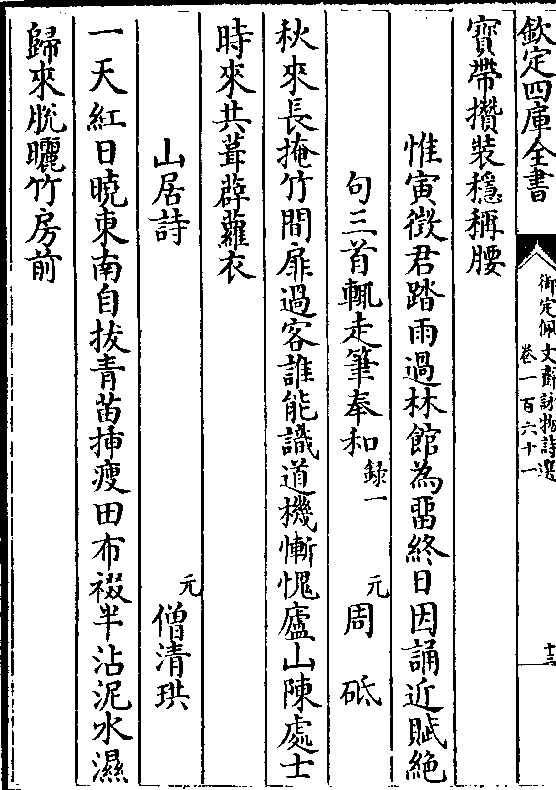 欽定四庫全書
御定佩文齋詠物詩選
卷一百六十一
十三
寳帶攢装穩稱腰
惟寅徴君踏雨過林館為畱終日因誦近賦絶
句三首輒走筆奉和錄一 元周砥
秋來長掩竹間扉過客誰能識道機慚愧廬山陳處士
時來共葺薜蘿衣
山居詩 元僧清珙
一天紅日曉東南自拔青苗揷瘦田布裰半沾泥水濕
歸來脫曬竹房前